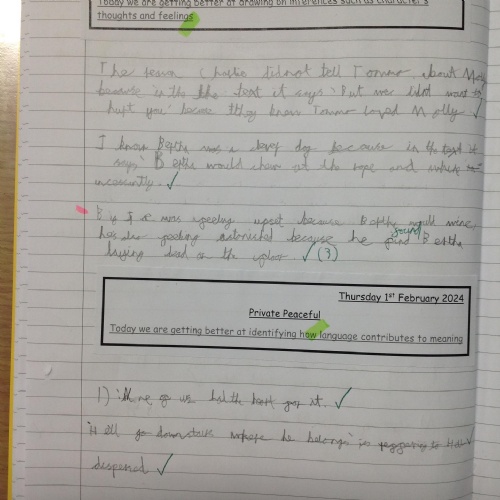 Today we are getting better at drawing on inferences such as character's
thoughts and feelings
The reson Charlie did not tell Tommo about Molly
because in the the text it says 'But we didnt want to
hurt you' because they know Tommo loved Molly
I know Bertha was a clever dog because in the text it
says' Bertha would chew at the rope and
incesently.
was feeling upset because Bertha would
feeling astonished because he found Bertha
laying dead on the (3)
Thursday 1st February 2024
Private Peaceful
Today we are getting better at identifying how language contributes to meaning
1) 'None of us had the heart for it.
'Hell go down where he belongs' is to